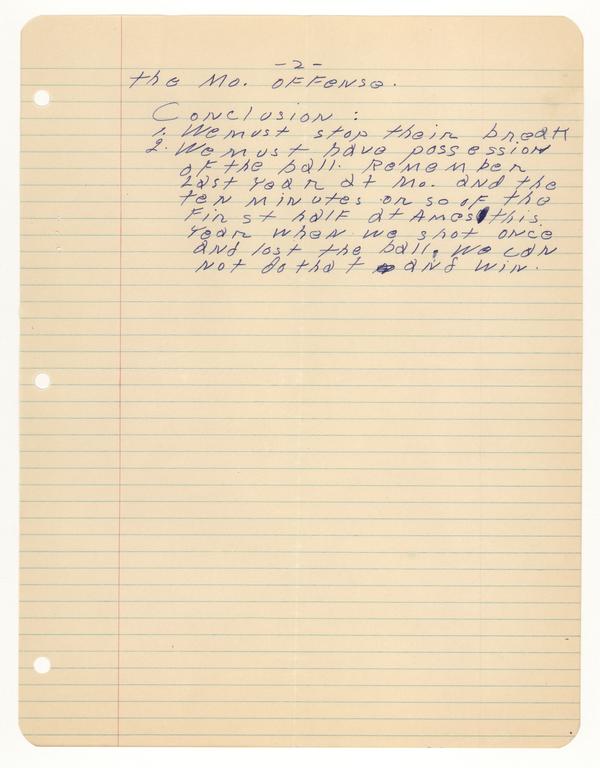 -2-
the Mo. offense.
Conclusion:
1. We must stop their break
2. We must have possession
of the ball. Remember
Last year at Mo. and the
ten minutes or so of the
first half at Ames this
year when we shot once
and lost the ball. We can
not do that and win.